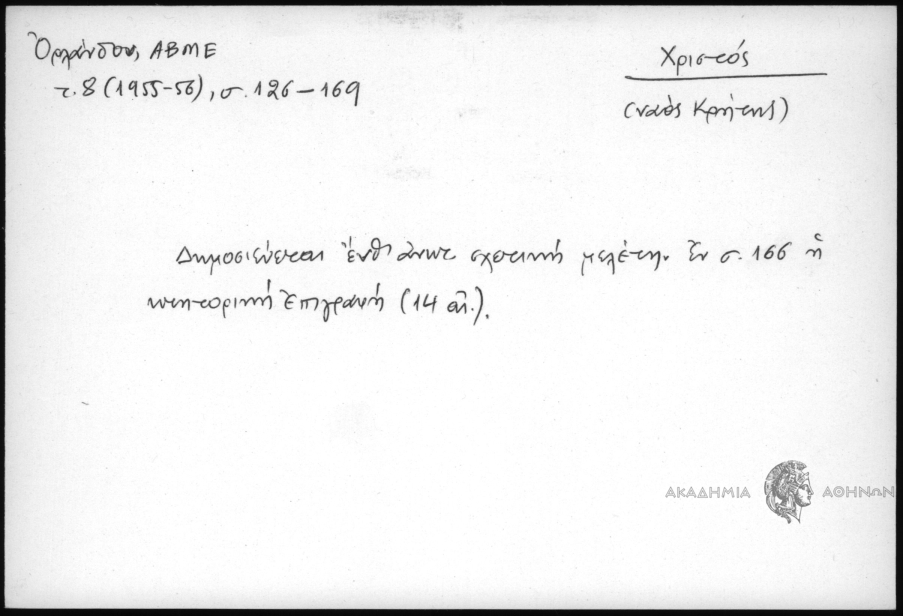 Ὀρλάνδου, ΑΒΜΕ
τ. 8 (1955-56), σ. 126-169
Χριστός
(ναὸς Κρήτης)
Δημοσιεύεται ἔνθ' ἄνω σχετικὴ μελέτη. Ἐν σ. 166 ἡ
κτητορικὴ ἐπιγραφή (14 αἰ.).
ΑΚΑΔΗΜΙΑ ΑΘΗΝΩΝ